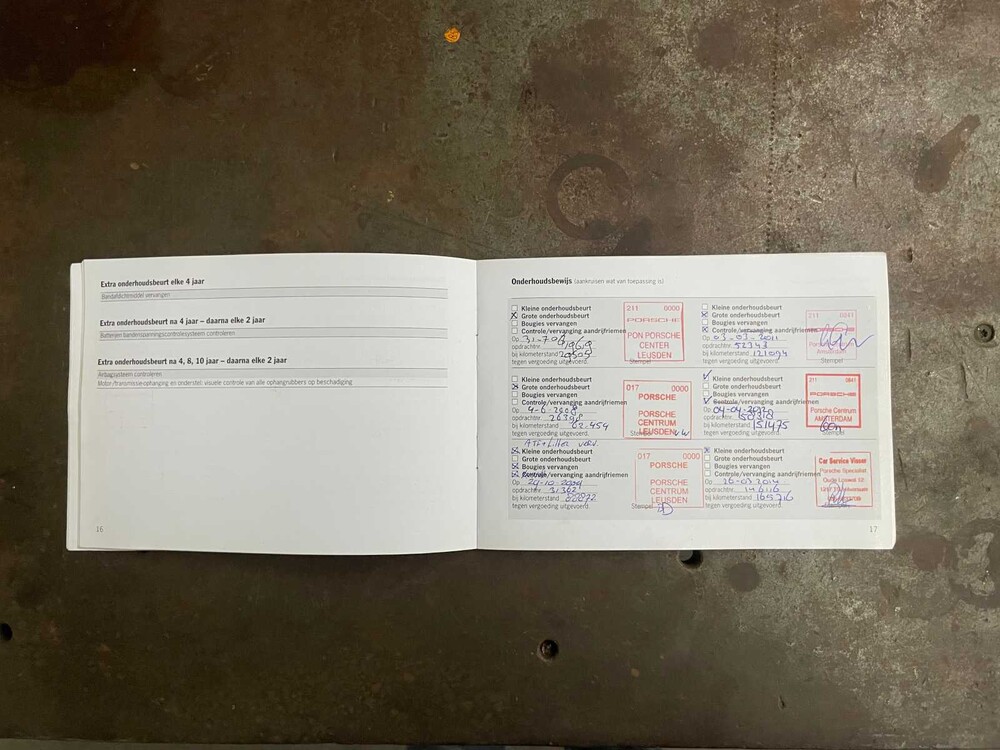 Extra onderhoudsbeurt elke 4 jaar
Bandafdichtmiddel vervangen
Extra onderhoudsbeurt na 4 jaar – daarna elke 2 jaar
Batterijen bandenspanningscontrolesysteem controleren
Extra onderhoudsbeurt na 4, 8, 10 jaar – daarna elke 2 jaar
Airbagsysteem controleren
Motor-/transmissie-ophanging en onderstel: visuele controle van alle ophangrubbers op beschadiging
16
Onderhoudsbewijs (aankruisen wat van toepassing is)
Kleine onderhoudsbeurt
Grote onderhoudsbeurt
Bougies vervangen
Controle/vervanging aandrijfriemen
Op
opdrachtnr.
bij kilometerstand
tegen vergoeding uitgevoerd.
Stempel
211 0000
PORSCHE
PON PORSCHE
CENTER
LEUSDEN
Kleine onderhoudsbeurt
Grote onderhoudsbeurt
Bougies vervangen
Controle/vervanging aandrijfriemen
Op 4-6-2008
opdrachtnr. 26398
bij kilometerstand 62.454
tegen vergoeding uitgevoerd.
Stempel
017 0000
PORSCHE
PORSCHE
CENTRUM
LEUSDEN
Kleine onderhoudsbeurt
Grote onderhoudsbeurt
Bougies vervangen
Op 29-10-2009
opdrachtnr. 31362
bij kilometerstand
tegen vergoeding uitgevoerd.
Stempel
017 0000
PORSCHE
PORSCHE
CENTRUM
LEUSDEN
Kleine onderhoudsbeurt
Grote onderhoudsbeurt
Bougies vervangen
Controle/vervanging aandrijfriemen
Op 03-03-2011
opdrachtnr. 52343
bij kilometerstand 121094
tegen vergoeding uitgevoerd.
Stempel
211 0841
PORSCHE
Amsterdam
Kleine onderhoudsbeurt
Grote onderhoudsbeurt
Bougies vervangen
Controle/vervanging aandrijfriemen
Op 04-04-2012
opdrachtnr.
bij kilometerstand 151475
tegen vergoeding uitgevoerd.
Stempel
211 0841
PORSCHE
Porsche Centrum
AMSTERDAM
Kleine onderhoudsbeurt
Grote onderhoudsbeurt
Bougies vervangen
Controle/vervanging aandrijfriemen
Op 26-03-2014
opdrachtnr.
bij kilometerstand 165716
tegen vergoeding uitgevoerd.
Stempel
Car Service Visser
Porsche Specialist
17